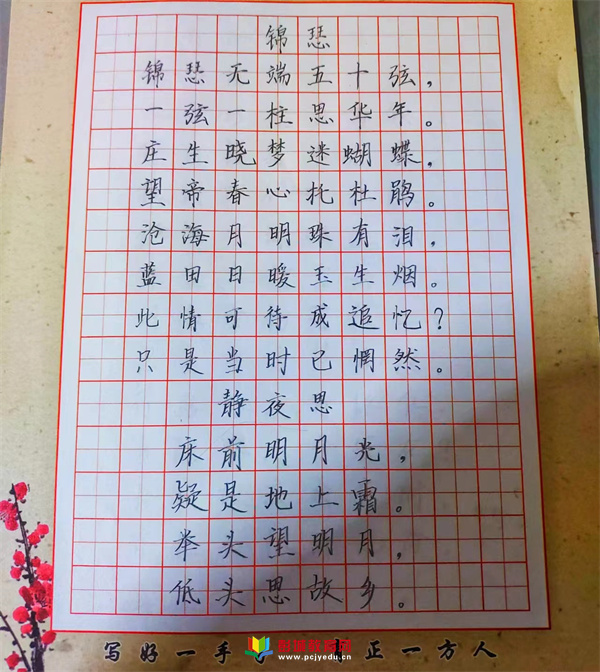 锦瑟
锦瑟无端五十弦,
一弦一柱思华年。
庄生晓梦迷蝴蝶,
望帝春心托杜鹃。
沧海月明珠有泪,
蓝田日暖玉生烟。
此情可待成追忆?
只是当时已惘然。
静夜思
床前明月光,
疑是地上霜。
举头望明月,
低头思故乡。
写好一手 正一方人
www.pcjyedu.cn